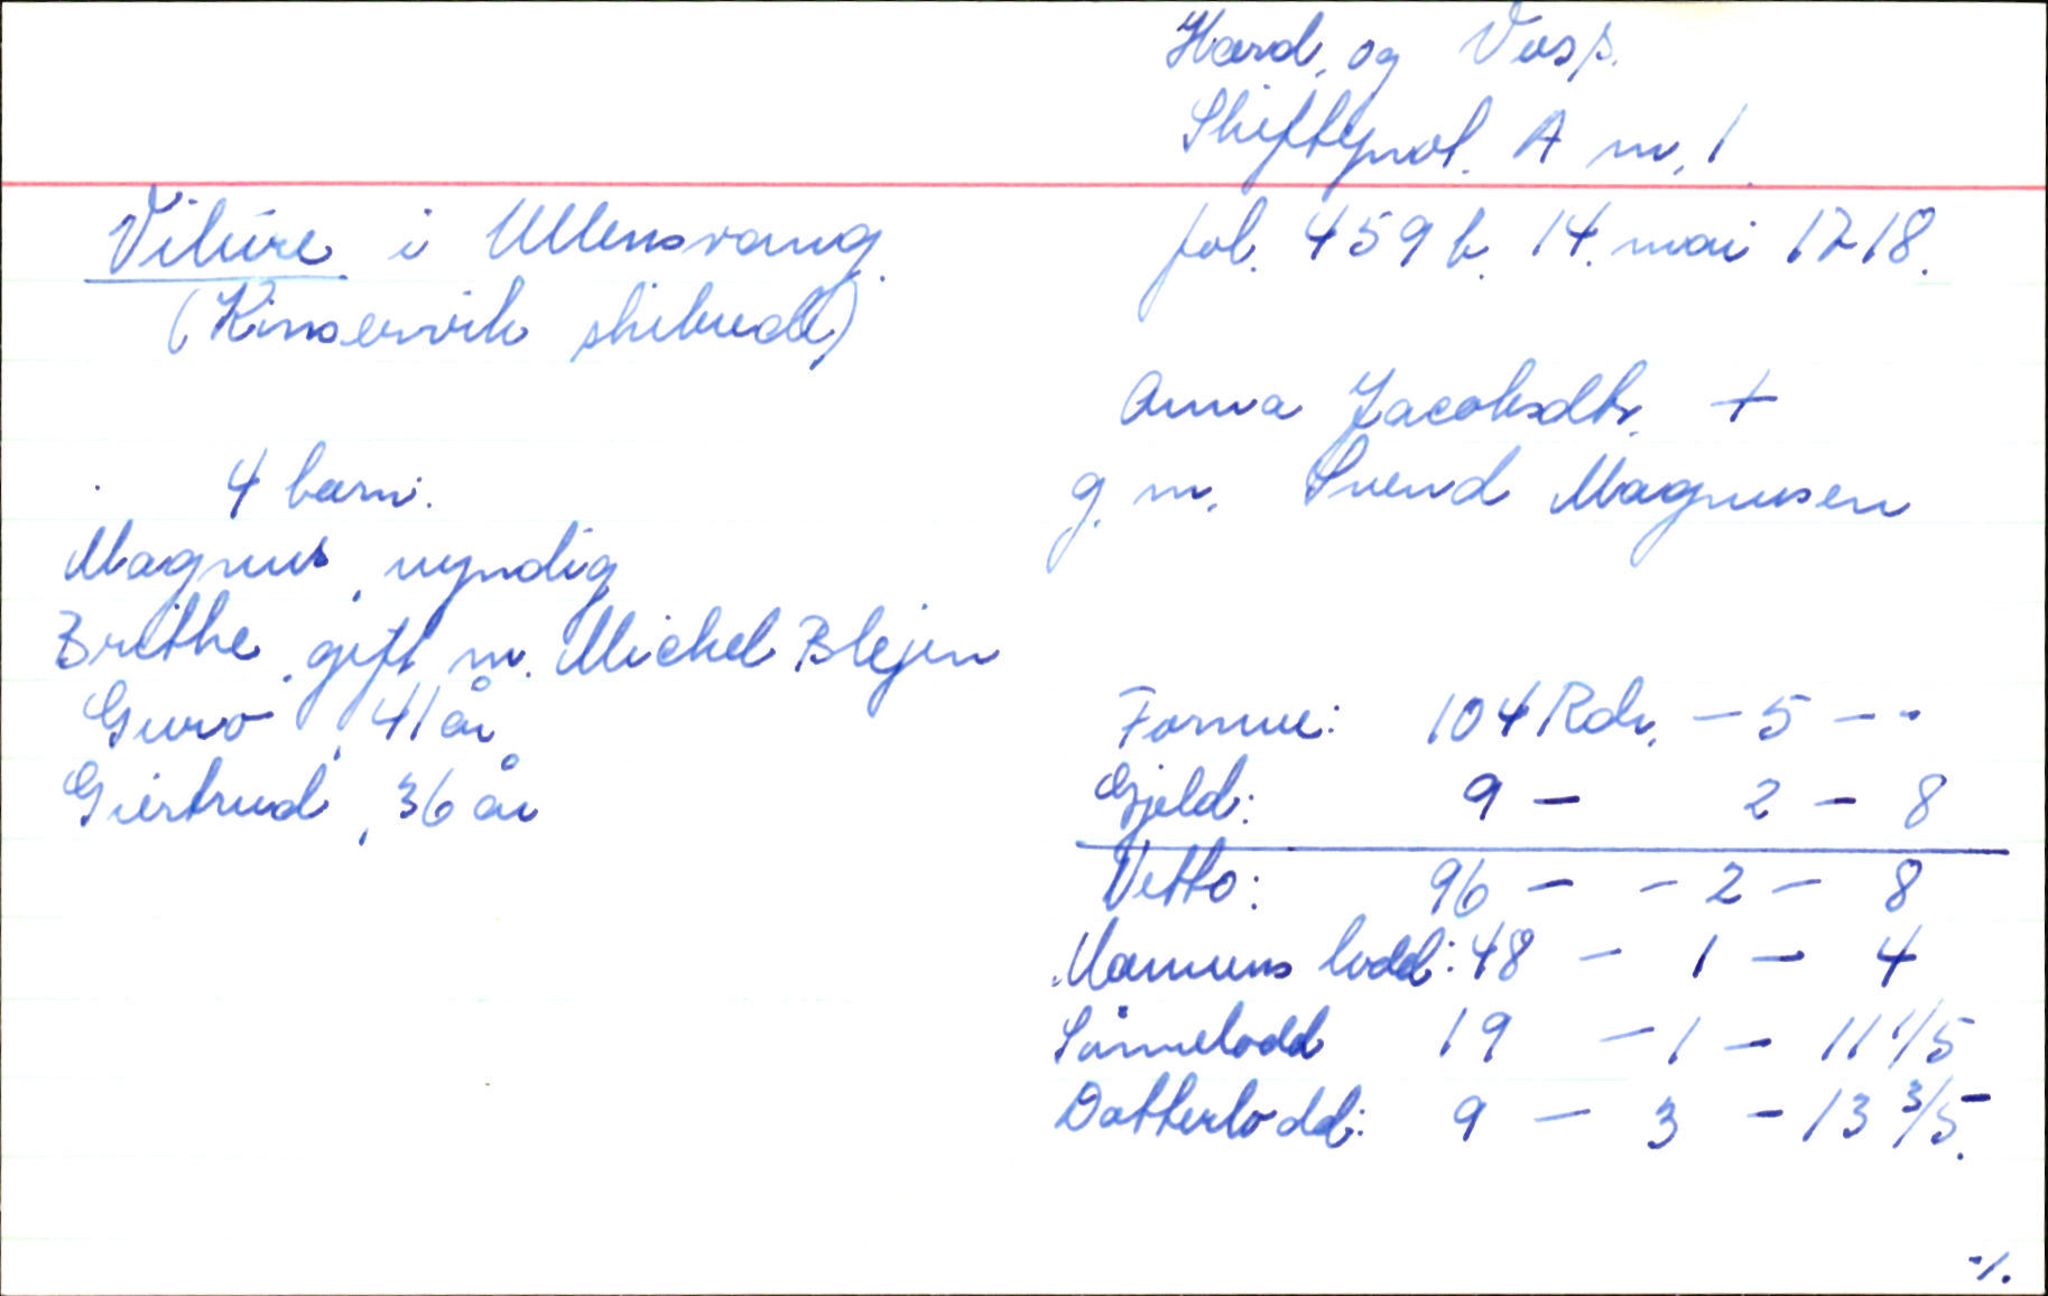 Hard. og Voss.
Skifteprot. A nr. 1.
fol. 459 b. 14. mai 1718.
Vilure i Ullensvang.
(Kinservik skibrede)
Anna Jacobsdtr. +
g. m. Svend Magnusen
4 barn:
Magnus, myndig
Brithe, gift m. Michel Blejen
Guro, 41 år
Giertrud, 36 år
Formue: 104 Rdr. - 5 - -
Gjeld: 9 - 2 - 8
Netto: 96 - - 2 - 8
Mannens lodd: 48 - 1 - 4
Sønnelodd 19 - 1 - 11 1/5
Datterlodd: 9 - 3 - 13 3/5.
./.